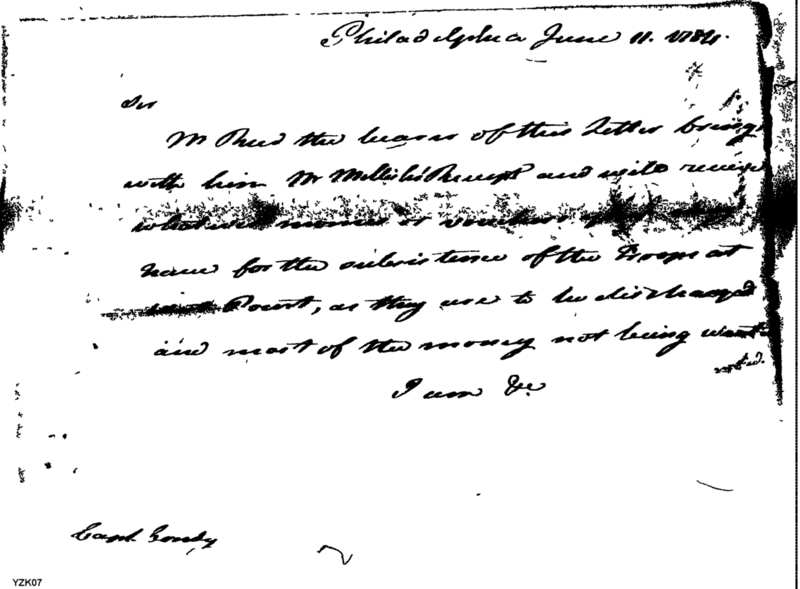 Philadelphia June 11. 1784.
Sir
Mr Reed the bearer of this Letter brings
with him Mr Receipt and will receive
whatever monies or vouchers
have for the subsistence of the Troops at
Point, as they are to be discharged
and most of the money not being wanted
I am &c.
Capt.
YZK07